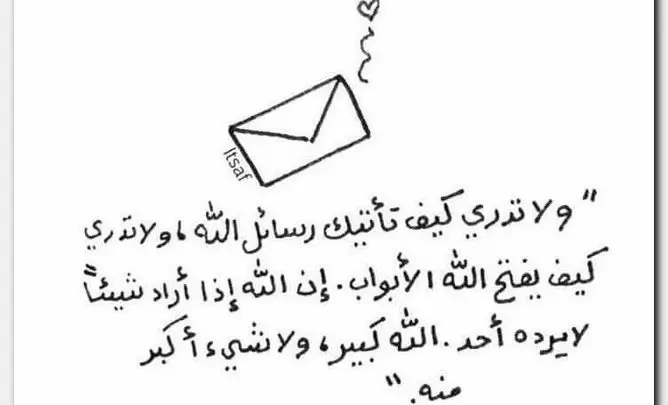 Itsaf
" ولا تدري كيف تأتيك رسائل الله ، ولا تدري
كيف يفتح الله الأبواب. إن الله إذا أراد شيئاً
لا يرده أحد. الله كبير ، ولا شيء أكبر
منه. "